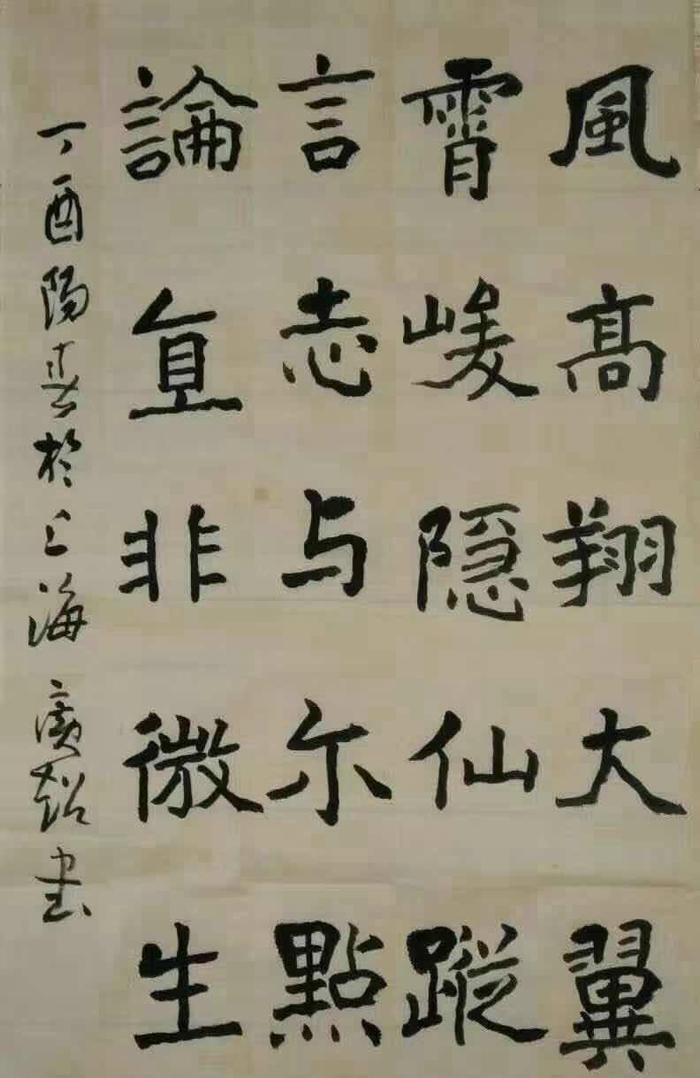 風高翔大翼
霄峻隐仙蹤
言志与尔點
論直非微生
丁酉陽春於上海廣韜书